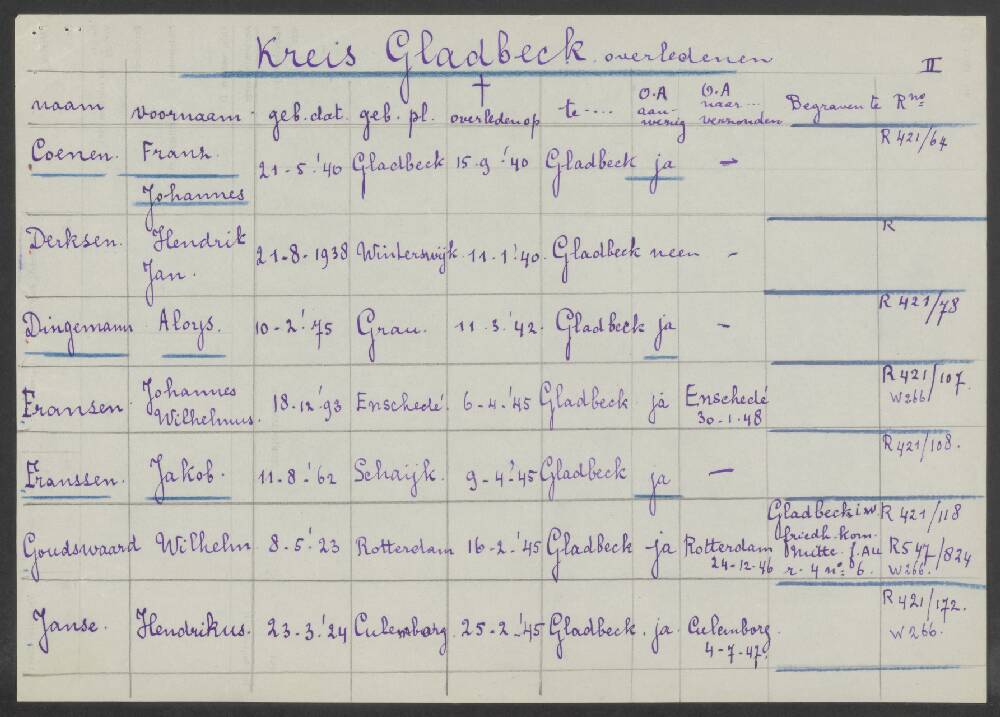 Kreis Gladbeck overledenen II
naam voornaam geb. dat. geb. pl. † overleden op te .... O.A aanwezig O.A naar ... verzonden Begraven te R no
Coenen. Franz Johannes 21-5-'40 Gladbeck 15-9-'40 Gladbeck ja - R 421/64
Derksen. Hendrik Jan. 21-8-1938 Winterswijk 11-1-'40. Gladbeck neen - R
Dingemann Aloys. 10-2-'75 Grau. 11-3-'42. Gladbeck ja - R 421/78
Fransen. Johannes Wilhelmus. 18-12-'93 Enschedé. 6-4-'45 Gladbeck ja Enschedé 30-1-48 R 421/107. W266
Franssen. Jakob. 11-8-'62 Schaijk. 9-4-'45 Gladbeck ja - R 421/108.
Goudswaard Wilhelm 8-5-'23 Rotterdam 16-2-'45 Gladbeck ja Rotterdam 24-12-46 Gladbeck i.w. friedh. kom. Mitte. f. Au r. 4 no: 6. R 421/118 R547/824 W266.
Janse. Hendrikus. 23-3-'24 Culemborg 25-2-'45 Gladbeck. ja. Culemborg. 4-7-47. R 421/172. W 266.